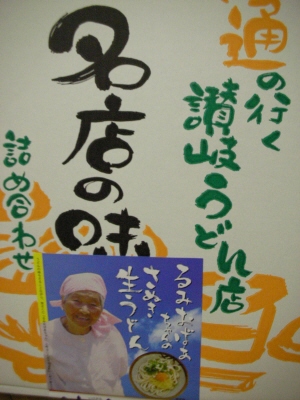 通の行く
讃岐うどん店
名店の味
詰め合わせ
るみおばあ
ちゃんの
さぬき
生うどん